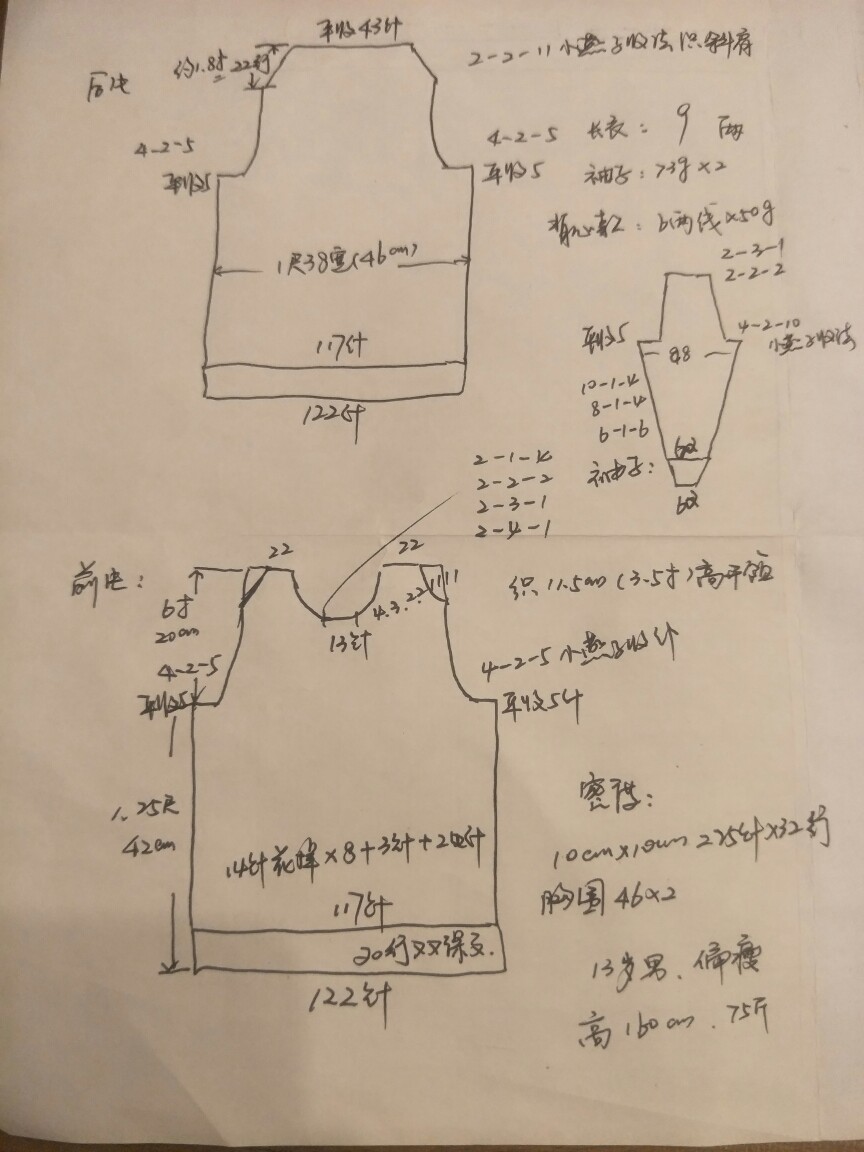 平收43针
2-2-11 小燕子收法 织斜肩
后片
约1.8寸 22行
4-2-5
平收5
4-2-5
平收5
长衣: 9两
袖子: 73g×2
背心款: 6两线×50g
1尺38宽(46cm)
117针
122针
2-3-1
2-2-2
平收5
4-2-10
小燕子收法
88
10-1-4
8-1-4
6-1-6
袖子:
2-1-4
2-2-2
2-3-1
2-4-1
前片:
22
22
6寸
20cm
13针
4.3.2.2.
1111
织11.5cm(3.5寸)高平领
4-2-5
平收5
4-2-5 小燕子收针
平收5针
1.25尺
42cm
14针花样×8+3针+2边针
117针
20行双螺纹.
122针
密度:
10cm×10cm 225针×32行
胸围46×2
13岁男、偏瘦
高160cm.75斤